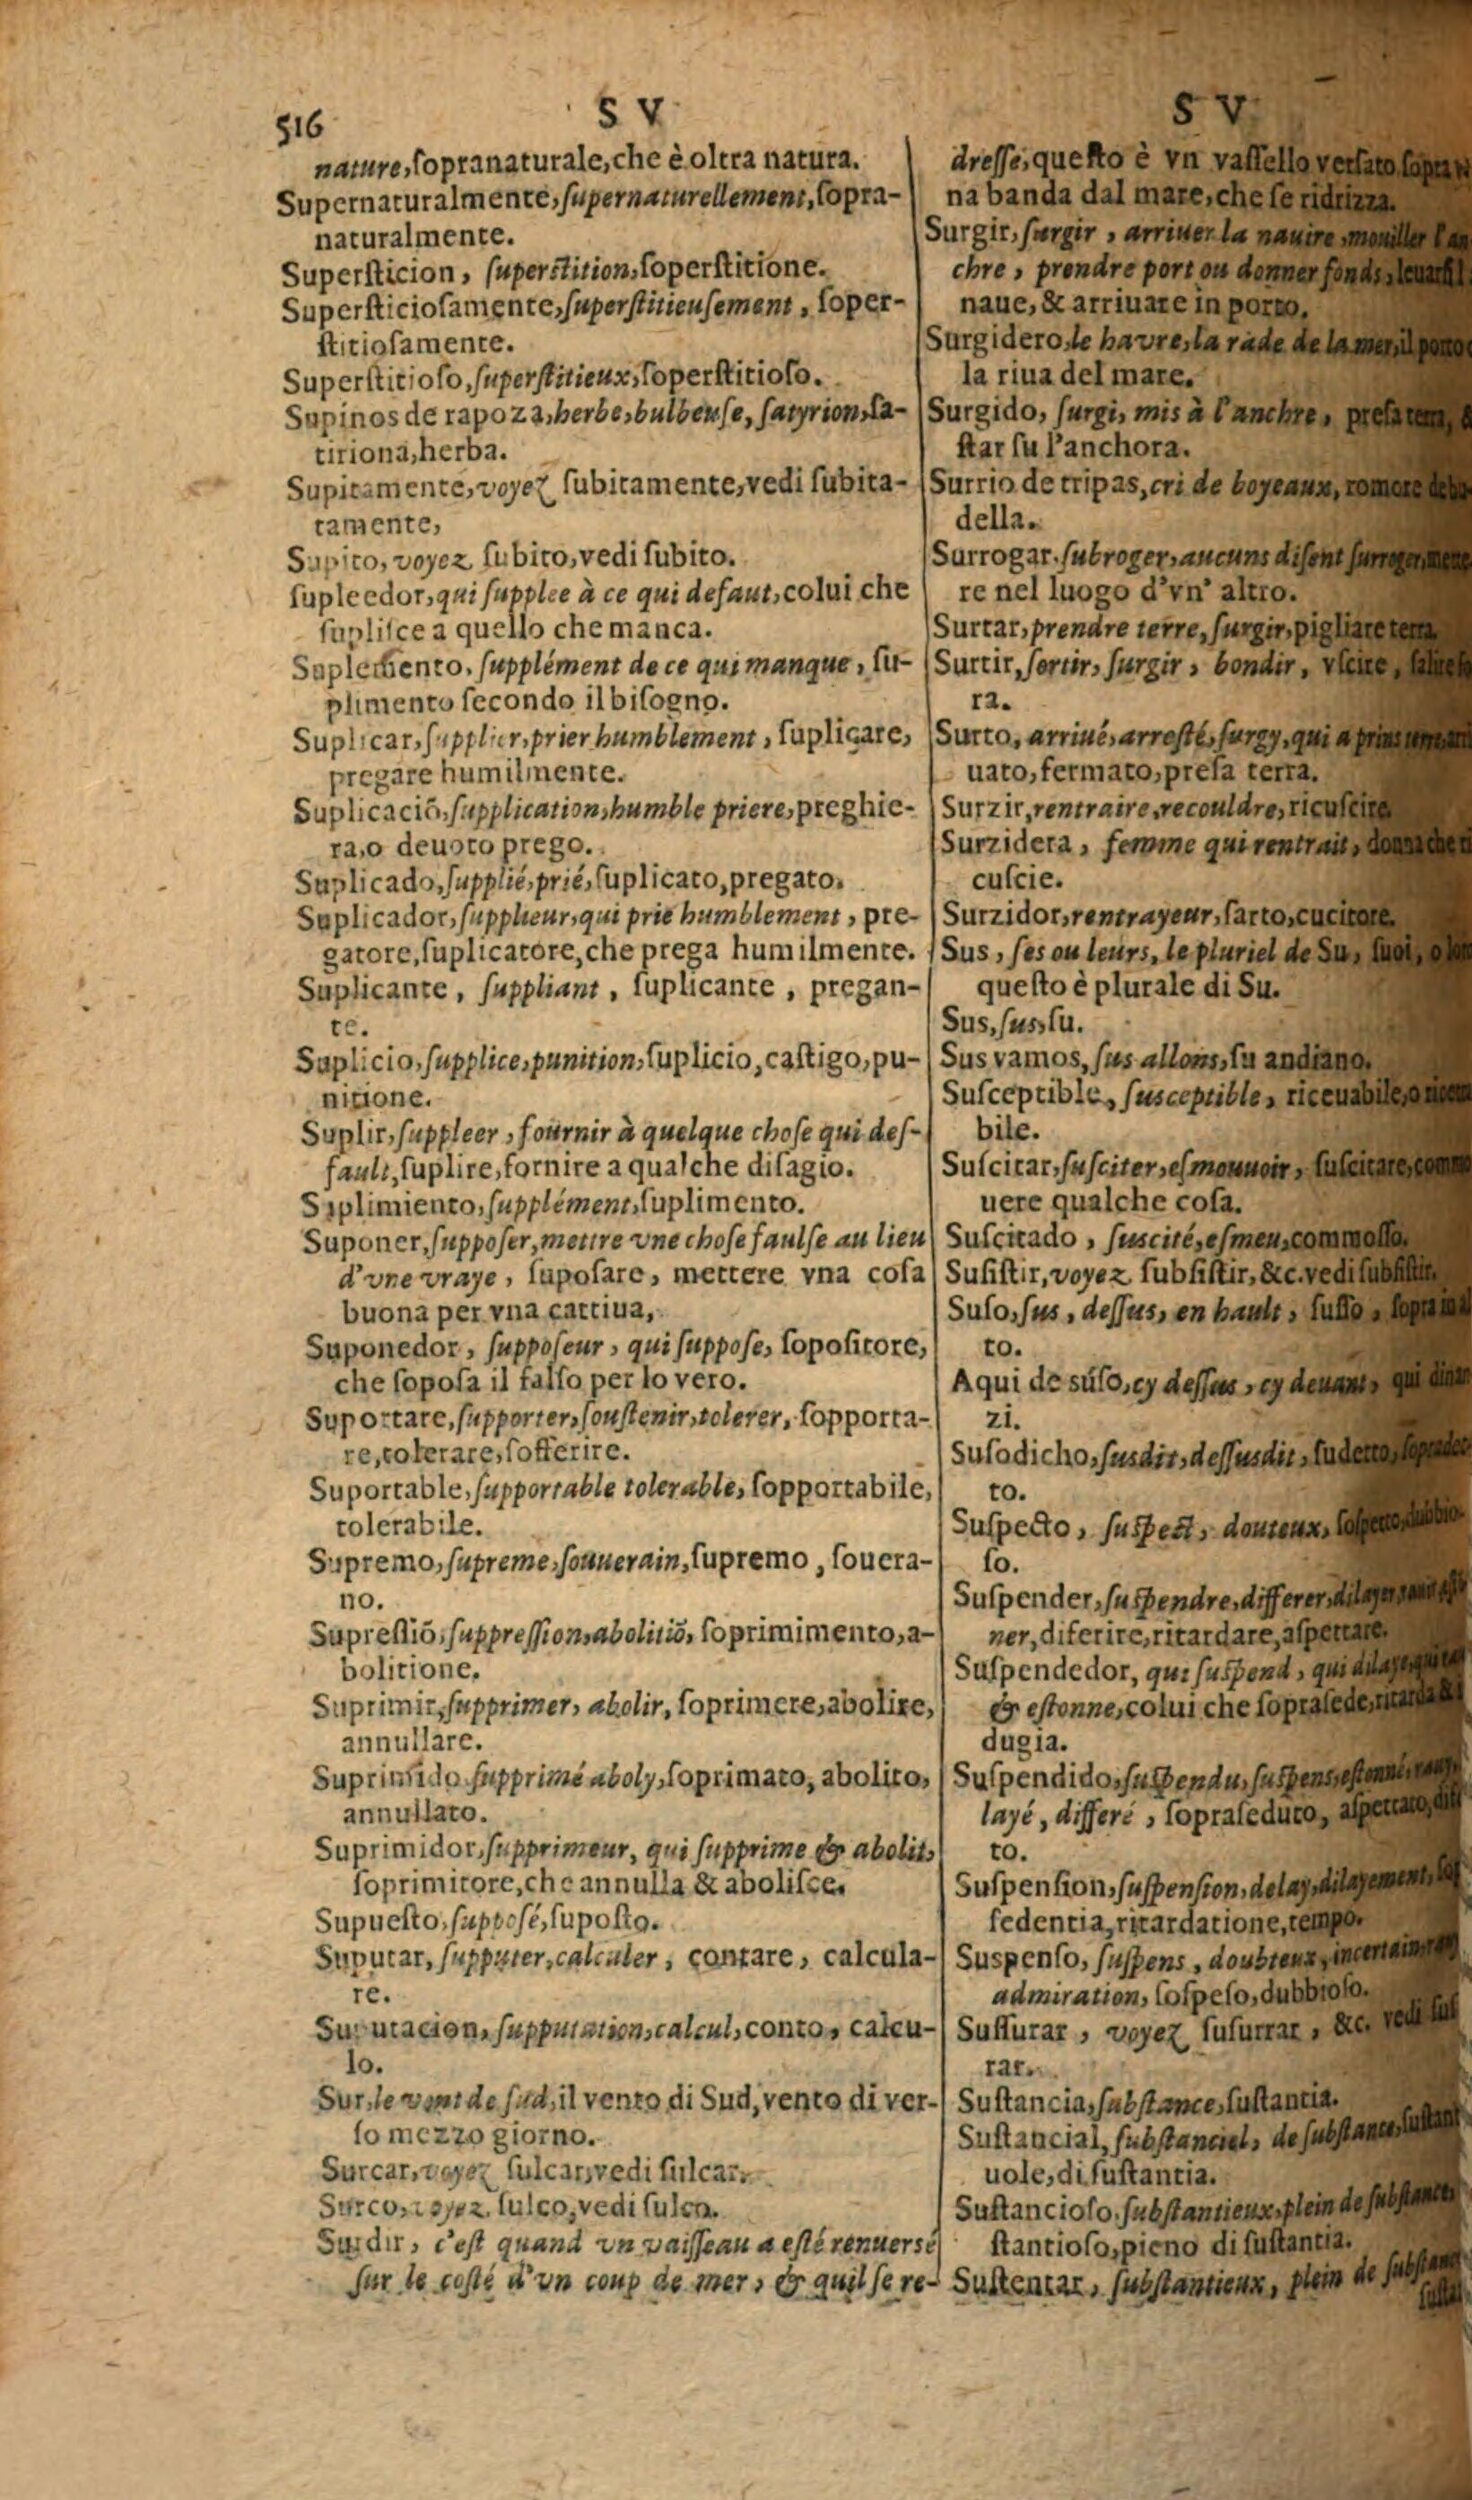 516
S V
nature,ſopranaturale,che è oltra natura.
Supernaturalmente,ſupernaturellement,ſopra-
naturalmente.
Superſticion, ſuperſtition,ſoperſtitione.
Superſticioſamente,ſuperſtitieuſement, ſoper-
ſtitioſamente.
Superſticioſo,ſuperſtitieux,ſoperſtitioſo.
Supinos de rapoza,herbe,bulbeuſe, ſatyrion,ſa-
tiriona,herba.
Supitamente,voyez ſubitamente,vedi ſubita-
tamente,
Supito, voyez ſubito,vedi ſubito.
ſupleedor,qui ſupplee à ce qui defaut,colui che
ſupliſce a quello che manca.
Suplemento, ſupplément de ce qui manque, ſu-
plimento ſecondo il biſogno.
Suplicar,ſupplier,prier humblement, ſuplicare,
pregare humilmente.
Suplicaciõ,ſupplication,humble priere,preghie-
ra,o deuoto prego.
Suplicado,ſupplié,prié,ſuplicato,pregato.
Suplicador,ſupplieur,qui prie humblement, pre-
gatore,ſuplicatore,che prega humilmente.
Suplicante, ſuppliant, ſuplicante, pregan-
te.
Suplicio,ſupplice,punition,ſuplicio,caſtigo,pu-
nitione.
Suplir,ſuppleer,fournir à quelque choſe qui deſ-
fault,ſuplire,fornire a qualche diſagio.
Suplimiento,ſupplément,ſuplimento.
Suponer,ſuppoſer,mettre vne choſe faulſe au lieu
d'vne vraye, ſupoſare, mettere vna coſa
buona per vna cattiua,
Suponedor, ſuppoſeur, qui ſuppoſe, ſopoſitore,
che ſopoſa il falſo per lo vero.
Suportare,ſupporter,ſouſtenir,tolerer, ſopporta-
re,tolerare,ſofferire.
Suportable,ſupportable tolerable, ſopportabile,
tolerabile.
Supremo,ſupreme,ſouuerain,ſupremo, ſouera-
no.
Supreſſiõ,ſuppreſſion,abolitiõ, ſoprimimento,a-
bolitione.
Suprimir,ſupprimer, abolir, ſoprimere,abolire,
annullare.
Suprimido ſupprimé aboly,ſoprimato, abolito,
annullato.
Suprimidor,ſupprimeur, qui ſupprime & abolit,
ſoprimitore,che annulla & aboliſce.
Supueſto,ſuppoſé,ſupoſto.
Suputar, ſupputer,calculer, contare, calcula-
re.
Suputacion, ſupputation,calcul,conto, calcu-
lo.
Sur,le vent de ſud,il vento di Sud,vento di ver-
ſo mezzo giorno.
Surcar,voyez ſulcar,vedi ſulcar.
Surco,voyez ſulco,vedi ſulco.
Surdir, c'eſt quand vn vaiſſeau a eſté renuersé
ſur le coſté d'vn coup de mer, & quil ſe re-
S V
dreſſe,queſto è vn vaſſello verſato ſopra v
na banda dal mare,che ſe ridrizza.
Surgir,ſurgir, arriuer la nauire,mouiller l'an
chre, prendre port ou donner fonds,
naue,& arriuare in porto.
Surgidero,le havre,la rade de la mer,il porto
la riua del mare.
Surgido, ſurgi, mis à l'anchre, preſa terra, &
ſtar ſu l'anchora.
Surrio de tripas,cri de boyeaux, romore
della.
Surrogar,ſubroger,aucuns diſent ſurroger,
re nel luogo d'vn' altro.
Surtar,prendre terre,ſurgir,pigliare terra
Surtir,ſortir, ſurgir, bondir, vſcire, ſalire
ra.
Surto, arriué,arreſté,ſurgy,qui a prins
uato,fermato,preſa terra.
Surzir,rentraire,recouldre,ricuſcire.
Surzidera, femme qui rentrait, donna che ri
cuſcie.
Surzidor,rentrayeur,ſarto,cucitore.
Sus, ſes ou leurs, le pluriel de Su, ſuoi, o
queſto è plurale di Su.
Sus,ſus,ſu.
Sus vamos,ſus allons,ſu andiano.
Suſceptible, ſusceptible, riceuabile,o
bile.
Suſcitar,ſuſciter,eſmouuoir, ſuſcitare,commo
uere qualche coſa.
Suſcitado, ſuscité,eſmeu,commoſſo.
Suſiſtir,voyez ſubſiſtir,&c.vedi ſubſiſtir.
Suſo,ſus, deſſus, en hault, ſuſſo, ſopra in al
to.
Aqui de súſo,cy deſſus, cy deuant, qui dinan
zi.
Suſodicho,ſusdit,deſſusdit, ſudetto,
to.
Suſpecto, ſuſpect, douteux, ſoſpetto,dubbio-
ſo.
Suſpender,ſuſpendre,differer,dilayer,
ner,diferire,ritardare,aſpettare.
Suſpendedor, qui ſuſpend, qui dilaye,
& eſtonne,colui che ſopraſede,ritarda &
dugia.
Suſpendido,ſuſpendu,ſuſpens,eſtonné,
layé, differé, ſopraſeduto, aſpettato,
to.
Suſpenſion,ſuſpenſion,delay,dilayement,
ſedentia,ritardatione,tempo.
Suspenſo, ſuſpens, doubteux, incertain,
admiration, ſoſpeſo,dubbioſo.
Suſſurar, voyez ſuſurrar, &c. vedi ſuſ
rar.
Suſtancia,ſubſtance,ſuſtantia.
Suſtancial, ſubſtanciel, de ſubſtance,ſuſtant
uole,di ſuſtantia.
Suſtancioſo,ſubſtantieux,plein de ſubſtance,
ſtantioſo,pieno di ſuſtantia.
Suſtentar, ſubſtantieux, plein de ſubſtance